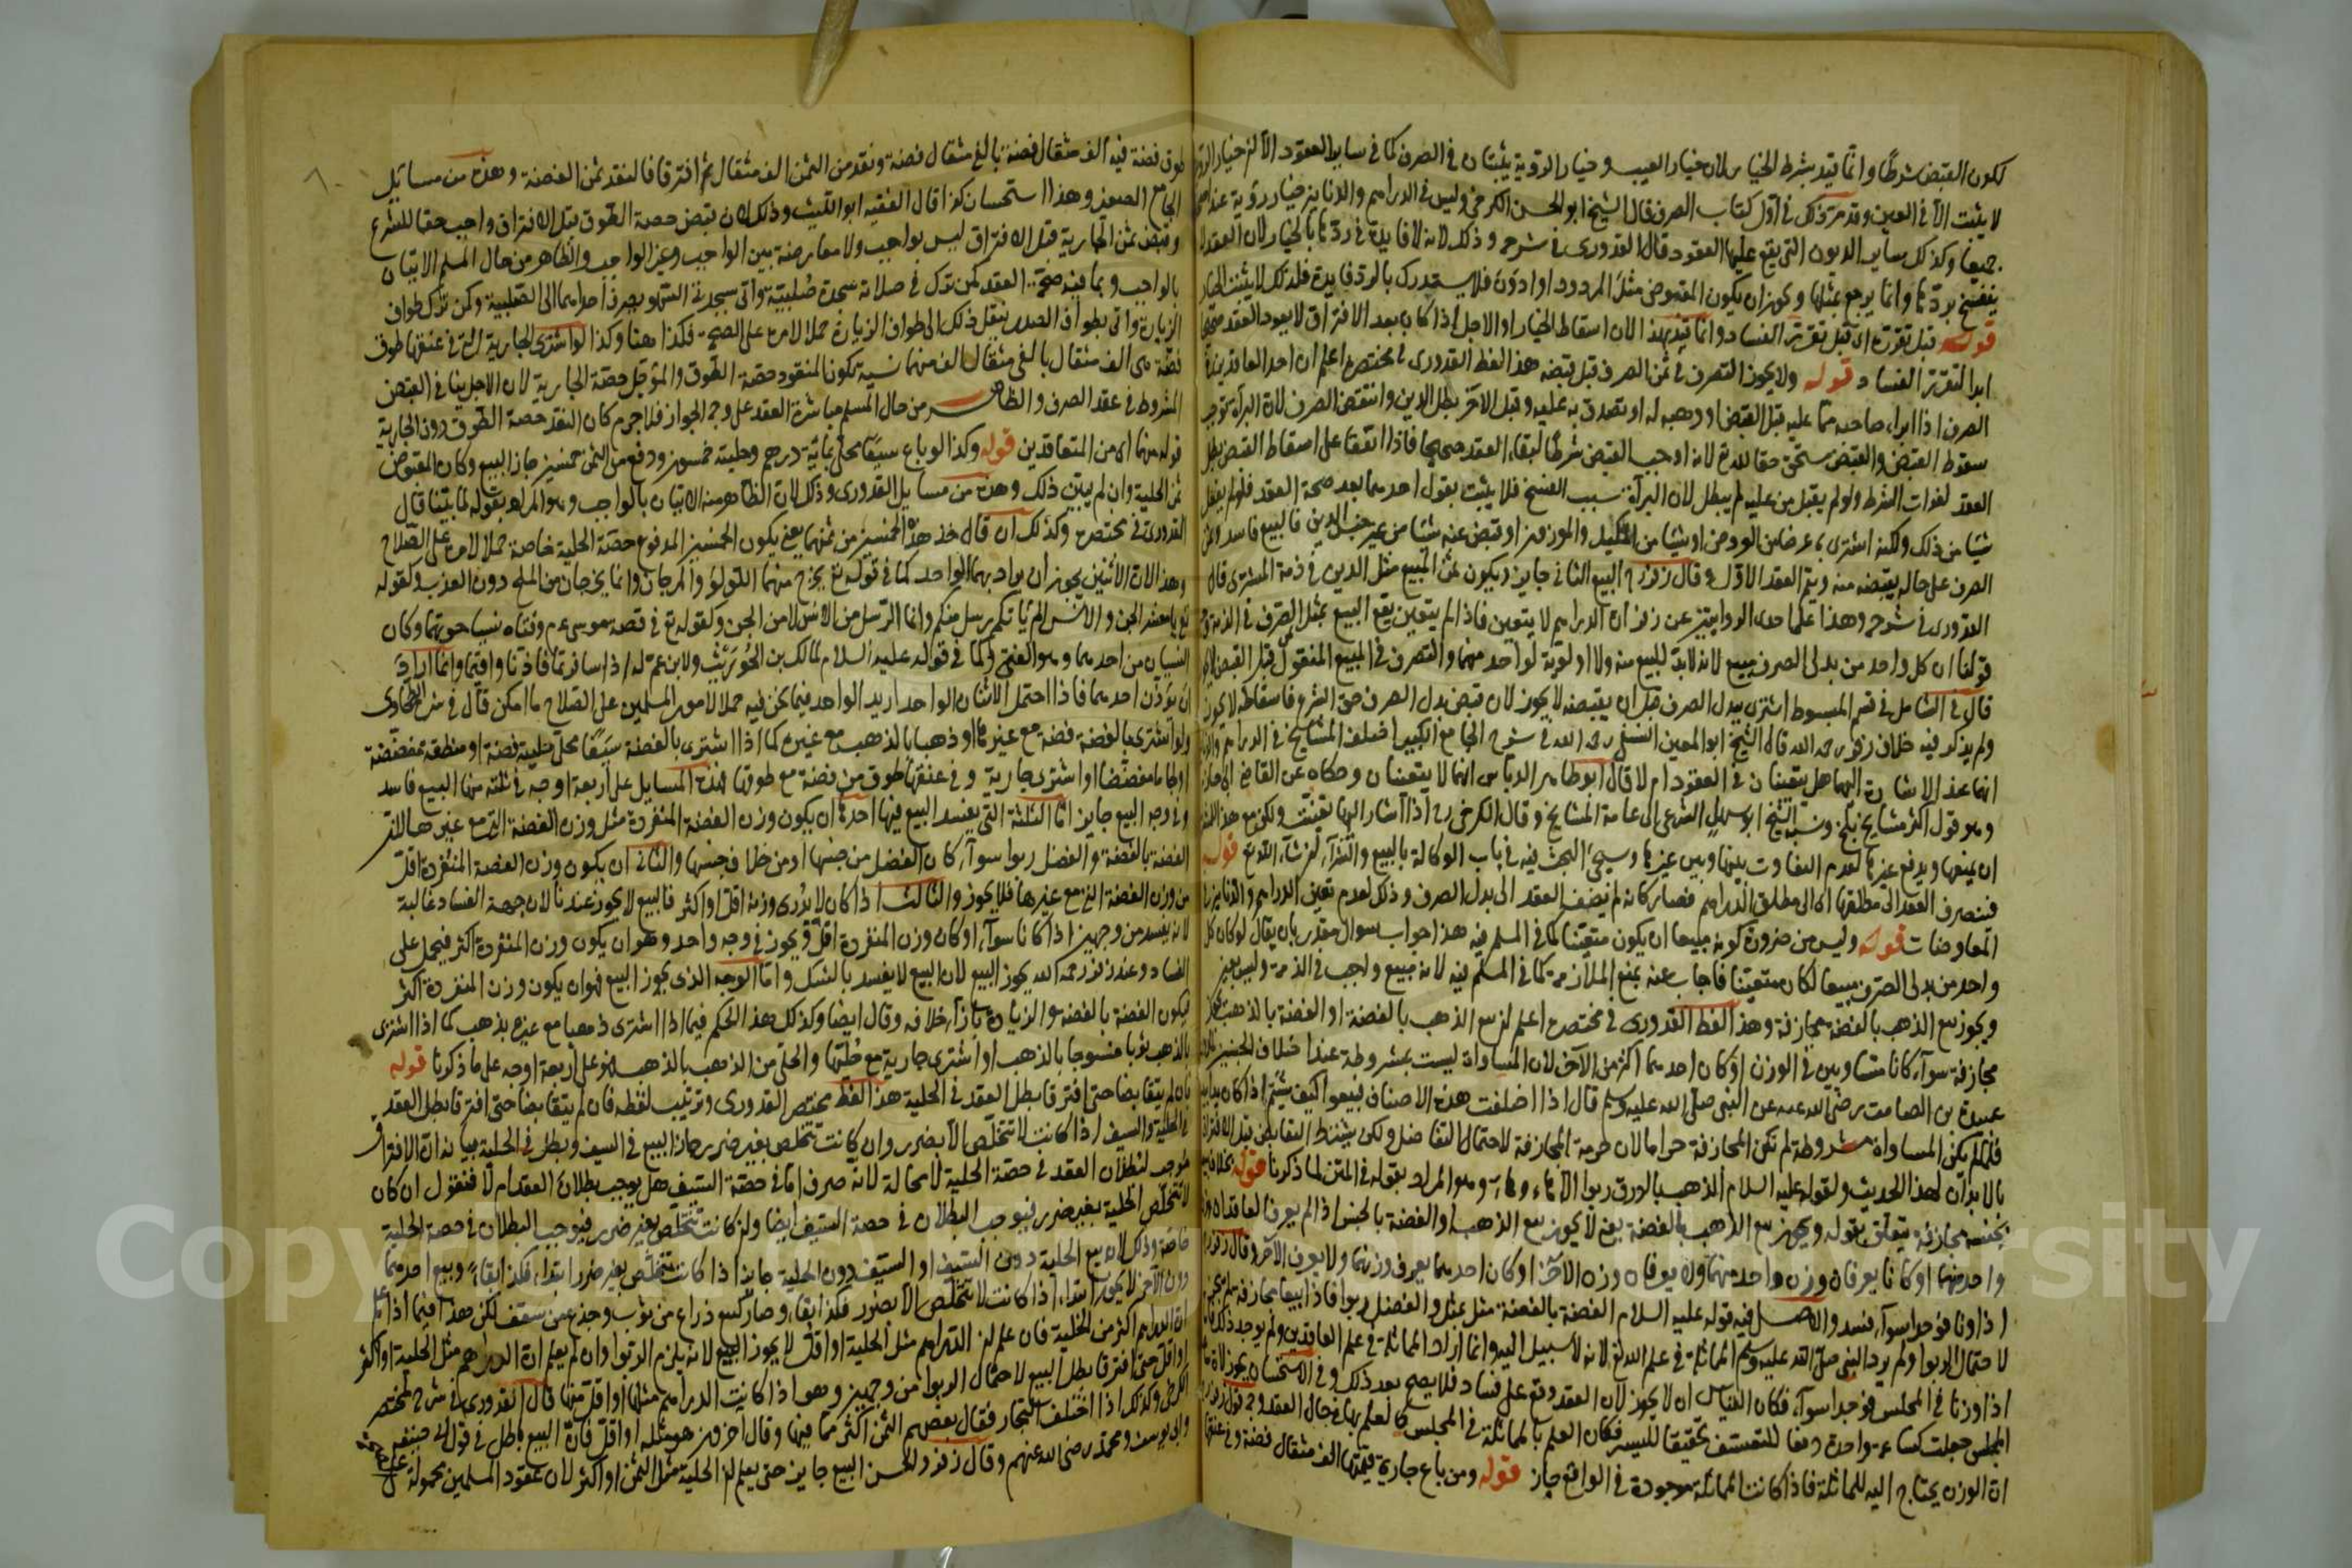 لكون القبض شرطا وانما قيد بشرط الخيار لان خيار العيب وخيار الرؤية يثبتان في الصرف كما في ساير العقود الا ان خيار الرؤية
لا يثبت الا في العين وقد مر ذلك في اول كتاب الصرف قال الشيخ ابو الحسن الكرخي وليس في الدراهم والدنانير خيار رؤية عندهم
جميعا وكذلك ساير الديون التي يقع عليها العقود قال القدوري في شرحه وذلك لانه لا فايدة في ردها بالخيار لان العقد لا
ينفسخ بردها وانما يرجع بمثلها ويجوز ان يكون المقبوض مثل المردود او ادون فلا يستدرك بالرد فايدة فلذلك لا يثبت الخيار
قوله قبل تقرره اي قبل تقرر الفساد وانما قيد بهذا لان اسقاط الخيار او الاجل اذا كان بعد الافتراق لا يعود العقد صحيحا
ابدا لتقرر الفساد قوله ولا يجوز التصرف في ثمن الصرف قبل قبضه هذا لفظ القدوري في مختصره اعلم ان احد العاقدين في
الصرف اذا ابراء صاحبه مما عليه قبل القبض او وهبه له او تصدق به عليه وقبل الآخر بطل الدين وانتقض الصرف لان البرآة توجب
سقوط القبض والقبض مستحق حقا لله تع لانه اوجب القبض شرطا لبقاء العقد صحيحا فاذا اتفقا على اسقاط القبض بطل
العقد لفوات الشرط ولو لم يقبل من عليه لم يبطل لان البرآة سبب الفسخ فلا يثبت بقول احدهما بعد صحة العقد فلو لم يفعل
شيا من ذلك ولكنه اشترى به عرضا من العروض او شيا من المكيل والموزون او قبض عنه شيا من غير جنس الدين فالبيع فاسد وثمن
الصرف على حاله يقبضه منه ويتم العقد الاول وقال زفر رح البيع الثاني جايز ويكون ثمن المبيع مثل الدين في ذمة المشتري قال
القدوري في شرحه وهذا على احدى الروايتين عن زفر ان الدراهم لا يتعين فاذا لم يتعين يقع البيع بمثل الصرف في الذمة وجه
قولنا ان كل واحد من بدلى الصرف مبيع لانه لا بد للبيع منه ولا اولوية لواحد منهما والتصرف في المبيع المنقول قبل القبض لا يجوز
قال في الشامل في قسم المبسوط اشترى ببدل الصرف قبل ان يقبضه لا يجوز لان قبض بدل الصرف حق الشرع فاسقاطه لا يجوز
ولم يذكر فيه خلاف زفر رحمه الله قال الشيخ ابو المعين النسفي رحمه الله في شرح الجامع الكبير اختلف المشايخ في الدراهم والدنانير
انما عند الاشارة اليهما هل يتعينان في العقود ام لا قال ابو طاهر الدباس انهما لا يتعينان وحكاه عن القاضي ابي حازم
وهو قول اكثر مشايخ بلخ ونسبه الشيخ ابو سهل الشرعي الى عامة المشايخ وقال الكرخي رح اذا اشار اليها تعينت ولكن مع هذا له
ان يمنعها ويدفع غيرها لعدم التفاوت بينها وبين غيرها وسيجيء البحث فيه في باب الوكالة بالبيع والشراء ان شاء الله تع قوله
فينصرف العقد الى مطلقها اي الى مطلق الدراهم فصار كانه لم يضف العقد الى بدل الصرف وذلك لعدم تعين الدراهم والدنانير في
المعاوضات قوله وليس من ضرورة كونه مبيعا ان يكون متعينا كما في المسلم فيه هذا جواب سوال مقدر بان يقال لو كان كل
واحد من بدلى الصرف مبيعا لكان متعينا فاجاب عنه بمنع الملازمة كما في المسلم فيه لانه مبيع واجب في الذمة وليس بعين
ويجوز بيع الذهب بالفضة مجازفة وهذا لفظ القدوري في مختصره اعلم ان بيع الذهب بالفضة او الفضة بالذهب
مجازفة سوآء كانا متساويين في الوزن او كان احدهما اكثر من الآخر لان المساواة ليست بمشروطة عند اختلاف الجنس
عبادة بن الصامت رضي الله عنه عن النبي صلى الله عليه وسلم قال اذا اختلفت هذه الاصناف فبيعوا كيف شئتم اذا كان يدا بيد
فلما لم يكن المساواة مشروطة لم تكن المجازفة حراما لان حرمة المجازفة لاحتمال التفاضل ولكن يشترط التقابض قبل الافتراق
بالابدان لهذا الحديث ولقوله عليه السلام الذهب بالورق ربوا الا هاء وهاء وهو المراد بقوله في المتن لما ذكرنا قوله بخلاف بيعه
بجنسه مجازفة يتعلق بقوله ويجوز بيع الذهب بالفضة يعني لا يجوز بيع الذهب او الفضة بالجنس اذا لم يعرف العاقدان وزن
واحد منهما او كانا يعرفان وزن واحد منهما ولا يعرفان وزن الآخر او كان احدهما يعرف وزنهما ولا يعرف الآخر وقال زفر
اذا وزنا فوجدا سوآء فسد والاصل فيه قوله عليه السلام الفضة بالفضة مثل بمثل والفضل ربوا فاذا بيعا مجازفة لم يجز
لاحتمال الربوا ولم يرد النبي صلى الله عليه وسلم المماثلة في علم الله تع لانه لا سبيل اليه وانما اراد المماثلة في علم العاقدين ولم يوجد ذلك
اذا وزنا في المجلس فوجدا سوآء فكان القياس ان لا يجوز لان العقد وقع على فساد فلا يصح بعد ذلك وفي الاستحسان يجوز لان
المجلس جعلت كساعة واحدة دفعا للتعسف تحقيقا لليسر فكان العلم بالمماثلة في المجلس كالعلم بها في حال العقد وجه قول زفر
ان الوزن يحتاج اليه للمماثلة فاذا كانت المماثلة موجودة في الواقع جاز قوله ومن باع جارية قيمتها الف مثقال فضة وفي عنقها
طوق فضة فيه الف مثقال فضة بالفي مثقال فضة ونقد من الثمن الف مثقال ثم افترقا فالنقد ثمن الفضة وهذه من مسائل
الجامع الصغير وهذا استحسان كذا قال الفقيه ابو الليث وذلك لان قبض حصة الطوق قبل الافتراق واجب حقا للشرع
وقبض ثمن الجارية قبل الافتراق ليس بواجب ولا معارضة بين الواجب وغير الواجب والظاهر من حال المسلم الاتيان
بالواجب وبما فيه صحة العقد كمن ترك في صلاته سجدة صلبية واتى بسجدتي السهو يصرف احداهما الى الصلبية وكمن ترك طواف
الزيارة واتى بطواف الصدر ينقل ذلك الى طواف الزيارة حملا لامره على الصحة فكذا هنا وكذا لو اشترى الجارية التي في عنقها طوق
فضة هي الف مثقال بالفي مثقال الف منهما نسية يكون المنقود حصة الطوق والمؤجل حصة الجارية لان الاجل ينافي القبض
المشروط في عقد الصرف والظاهر من حال المسلم مباشرة العقد على وجه الجواز فلا جرم كان النقد حصة الطوق دون الجارية
قوله منهما اي من المتعاقدين قوله وكذا لو باع سيفا محلى بماية درهم وحليته خمسون ودفع من الثمن خمسين جاز البيع وكان المقبوض
ثمن الحلية وان لم يبين ذلك وهذه من مسايل القدوري وذلك لان الظاهر منه الاتيان بالواجب وهو المراد بقوله لما بينا قال
القدوري في مختصره وكذلك ان قال خذ هذه الخمسين من ثمنهما يعني يكون الخمسين المدفوع حصة الحلية خاصة حملا لامره على الصلاح
وهذا لان الاثنين يجوز ان يراد بهما الواحد كما في قوله تع يخرج منهما اللؤلؤ والمرجان وانما يخرجان من الملح دون العذب ولقوله
تع يا معشر الجن والانس الم ياتكم رسل منكم وانما الرسل من الانس لا من الجن ولقوله تع في قصة موسى عم وفتاه نسيا حوتهما وكان
النسيان من احدهما وهو الفتى وكما في قوله عليه السلام لمالك بن الحويرث ولابن عم له اذا سافرتما فاذنا واقيما وانما اراد
ان يؤذن احدهما فاذا احتمل الاثنان الواحد اريد الواحد فيما نحن فيه حملا لامور المسلمين على الصلاح ما امكن قال في شرح الطحاوي
ولو اشترى بالفضة فضة مع غيرها او ذهبا بالذهب مع غيره كما اذا اشترى بالفضة سيفا محلى بحلية فضة او منطقة مفضضة
او لجاما مفضضا او اشترى جارية وفي عنقها طوق من فضة مع طوقها فهذه المسايل على اربعة اوجه في ثلثة منها البيع فاسد
وفي وجه البيع جايز اما الثلثة التي يفسد البيع فيها احدها ان يكون وزن الفضة المنفردة مثل وزن الفضة التي مع غيرها لان
الفضة بالفضة والفضل ربوا سوآء كان الفضل من جنسها او من خلاف جنسها والثاني ان يكون وزن الفضة المنفردة اقل
من وزن الفضة التي مع غيرها فلا يجوز والثالث اذا كان لا يدرى وزنه اقل او اكثر فالبيع لا يجوز عندنا لان جهة الفساد غالبة
لانه يفسد من وجهين اذا كانا سوآء او كان وزن المنفردة اقل ويجوز في وجه واحد وهو ان يكون وزن المنفردة اكثر فيحمل على
الفساد وعند زفر رحمه الله يجوز البيع لان البيع لا يفسد بالشك واما الوجه الذي يجوز البيع فهو ان يكون وزن المنفردة اكثر
ليكون الفضة بالفضة والزيادة بازآء خلافه وقال ايضا وكذلك هذا الحكم فيما اذا اشترى ذهبا مع غيره بذهب كما اذا اشترى
بالذهب ثوبا منسوجا بالذهب او اشترى جارية مع حليها والحلي من الذهب بالذهب فهو على اربعة اوجه على ما ذكرنا قوله
فان لم يتقابضا حتى افترقا بطل العقد في الحلية هذا لفظ مختصر القدوري وترتيب لفظه فان لم يتقابضا حتى افترقا بطل العقد
في الحلية والسيف اذا كانت لا تتخلص الا بضرر وان كانت تتخلص بغير ضرر جاز البيع في السيف وبطل في الحلية بيانه ان الافتراق
موجب لبطلان العقد في حصة الحلية لا محالة لانه صرف اما في حصة السيف هل يوجب بطلان العقد ام لا فنقول ان كان
لا تتخلص الحلية بغير ضرر فيوجب البطلان في حصة السيف ايضا وان كانت تتخلص بغير ضرر فيوجب البطلان في حصة الحلية
خاصة وذلك لان بيع الحلية دون السيف او السيف دون الحلية جايز اذا كانت تتخلص بغير ضرر ابتداء فكذا بقاء وبيع احدهما
دون الآخر لا يجوز ابتداء اذا كانت لا تتخلص الا بضرر فكذا بقاء وصار كبيع ذراع من ثوب وجذع من سقف لكن هذا فيما اذا علم
ان الدراهم اكثر من الحلية فان علم ان الدراهم مثل الحلية او اقل لا يجوز البيع لانه يلزم الربوا وان لم يعلم ان الدراهم مثل الحلية او اكثر
او اقل حتى افترقا بطل البيع لاحتمال الربوا من وجهين وهو اذا كانت الدراهم مثلها او اقل منها قال القدوري في شرحه لمختصر
الكرخي وكذلك اذا اختلف التجار فقال بعضهم الثمن اكثر مما فيها وقال آخرون هو مثله او اقل فان البيع باطل في قول ابي حنيفة
وابي يوسف ومحمد رضي الله عنهم وقال زفر والحسن البيع جايز حتى يعلم ان الحلية مثل الثمن او اكثر لان عقود المسلمين محمولة